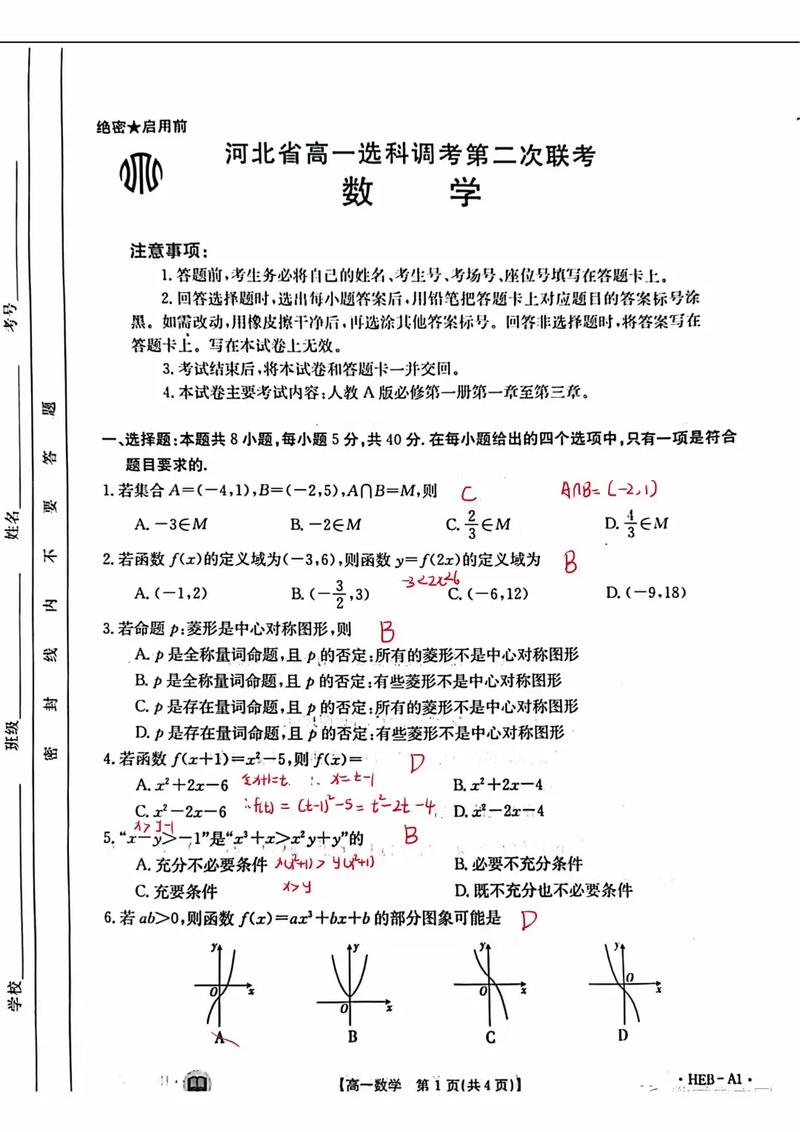 绝密★启用前
河北省高一选科调考第二次联考
数 学
注意事项:
1.答题前,考生务必将自己的姓名、考生号、考场号、座位号填写在答题卡上。
2.回答选择题时,选出每小题答案后,用铅笔把答题卡上对应题目的答案标号涂
黑。如需改动,用橡皮擦干净后,再选涂其他答案标号。回答非选择题时,将答案写在
答题卡上。写在本试卷上无效。
3.考试结束后,将本试卷和答题卡一并交回。
4.本试卷主要考试内容:人教A版必修第一册第一章至第三章。
一、选择题:本题共8小题,每小题5分,共40分.在每小题给出的四个选项中,只有一项是符合
题目要求的.
1.若集合A=(-4,1),B=(-2,5),A∩B=M,则 C A∩B=(-2,1)
A.-3∈M B.-2∈M C.2/3∈M D.4/3∈M
2.若函数f(x)的定义域为(-3,6),则函数y=f(2x)的定义域为 B
-3<2x<6
A.(-1,2) B.(-3/2,3) C.(-6,12) D.(-9,18)
3.若命题p:菱形是中心对称图形,则 B
A.p是全称量词命题,且p的否定:所有的菱形不是中心对称图形
B.p是全称量词命题,且p的否定:有些菱形不是中心对称图形
C.p是存在量词命题,且p的否定:所有的菱形不是中心对称图形
D.p是存在量词命题,且p的否定:有些菱形不是中心对称图形
4.若函数f(x+1)=x²-5,则f(x)= D
A.x²+2x-6 令x+1=t ∴x=t-1 B.x²+2x-4
C.x²-2x-6 ∴f(t)=(t-1)²-5=t²-2t-4 D.x²-2x-4
x>y-1
5.“x-y>-1”是“x³+x>x²y+y”的 B
A.充分不必要条件 x(x²+1)>y(x²+1) B.必要不充分条件
C.充要条件 x>y D.既不充分也不必要条件
6.若ab>0,则函数f(x)=ax³+bx+b的部分图象可能是 D
y y y y
O x O x O x O x
A B C D
【高一数学 第1页(共4页)】
·HEB-A1·
学校
班级
姓名
考号
密封线内不要答题